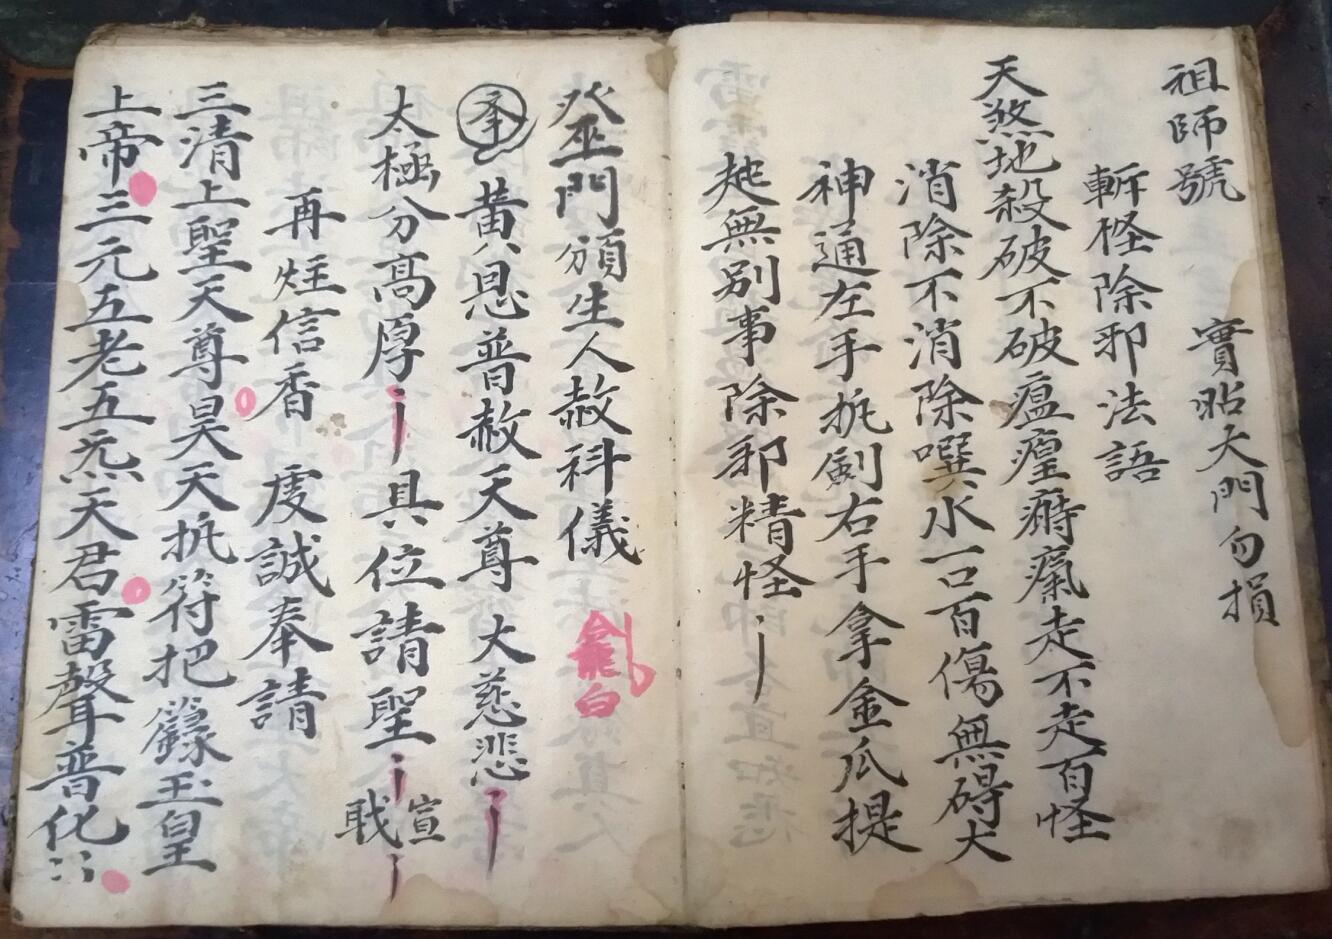 祖師號 實昭天門勿損
斬怪除邪法語
天煞地殺破不破瘟瘽癠氣走不走百怪
消除不消除噀水一口百傷無碍大
神通左手执劍右手拿金瓜提
起無別事除邪精怪
巫門頒生人赦科儀
黄人恩普赦天尊 大慈悲
太極分高厚 具位請聖 宣
戢
再炷信香 虔誠奉請
三清上聖天尊昊天执符把籙玉皇
上帝三元五老五炁天君雷聲普化